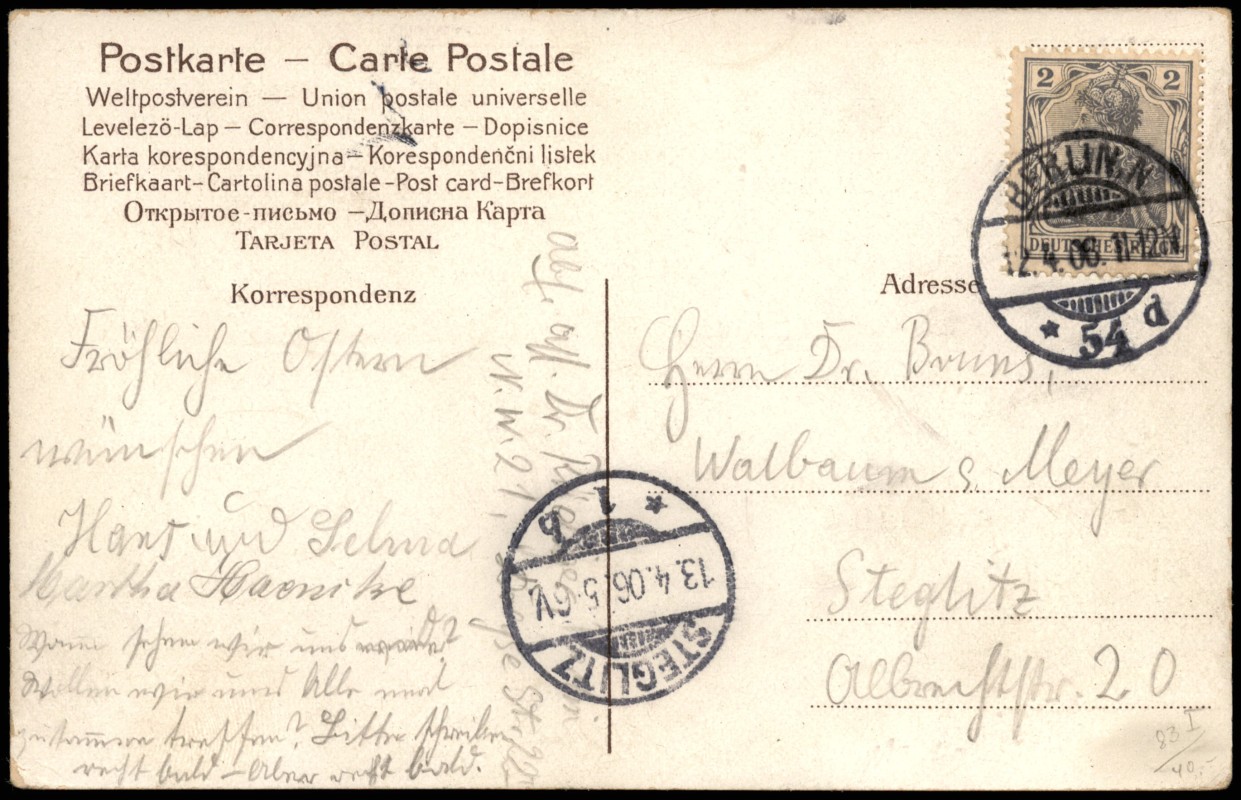 Postkarte — Carte Postale
Weltpostverein — Union postale universelle
Levelezö-Lap — Correspondenzkarte — Dopisnice
Karta korespondencyjna — Korespondenčni listek
Briefkaart - Cartolina postale - Post card - Brefkort
Открытое-письмо — Дописна Карта
Tarjeta Postal
Korrespondenz
Fröhliche Ostern
wünschen
Hans und Selma
Martha
Wann sehen wir uns wieder?
Wollen wir uns Alle mal
zusammen treffen? Bitte schreiben
recht bald - Aber recht bald.
abs. Dr.
N.W. 21.
Str. 22
Adresse
Herrn Dr. Bruns,
Walbaum s. Meyer
Steglitz
Albrechtstr. 20
2 2
DEUTSCHES REICH
BERLIN. N.
12.4.06. 11-12V.
* 54 d
STEGLITZ
13.4.06. 5-6V.
* 1 b
83 I
40.-